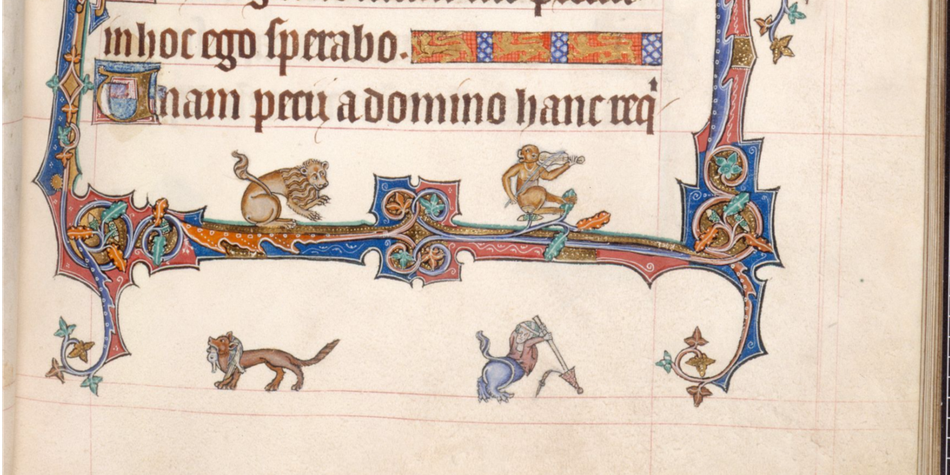 in hoc ego sperabo.
Unam petii a domino hanc req'